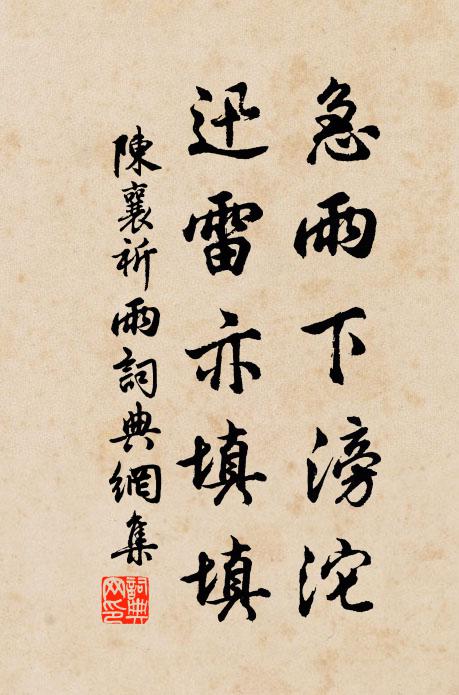 急雨下滂沱
迅雷亦填填
陳襄祈雨詞典網集
詞典网印